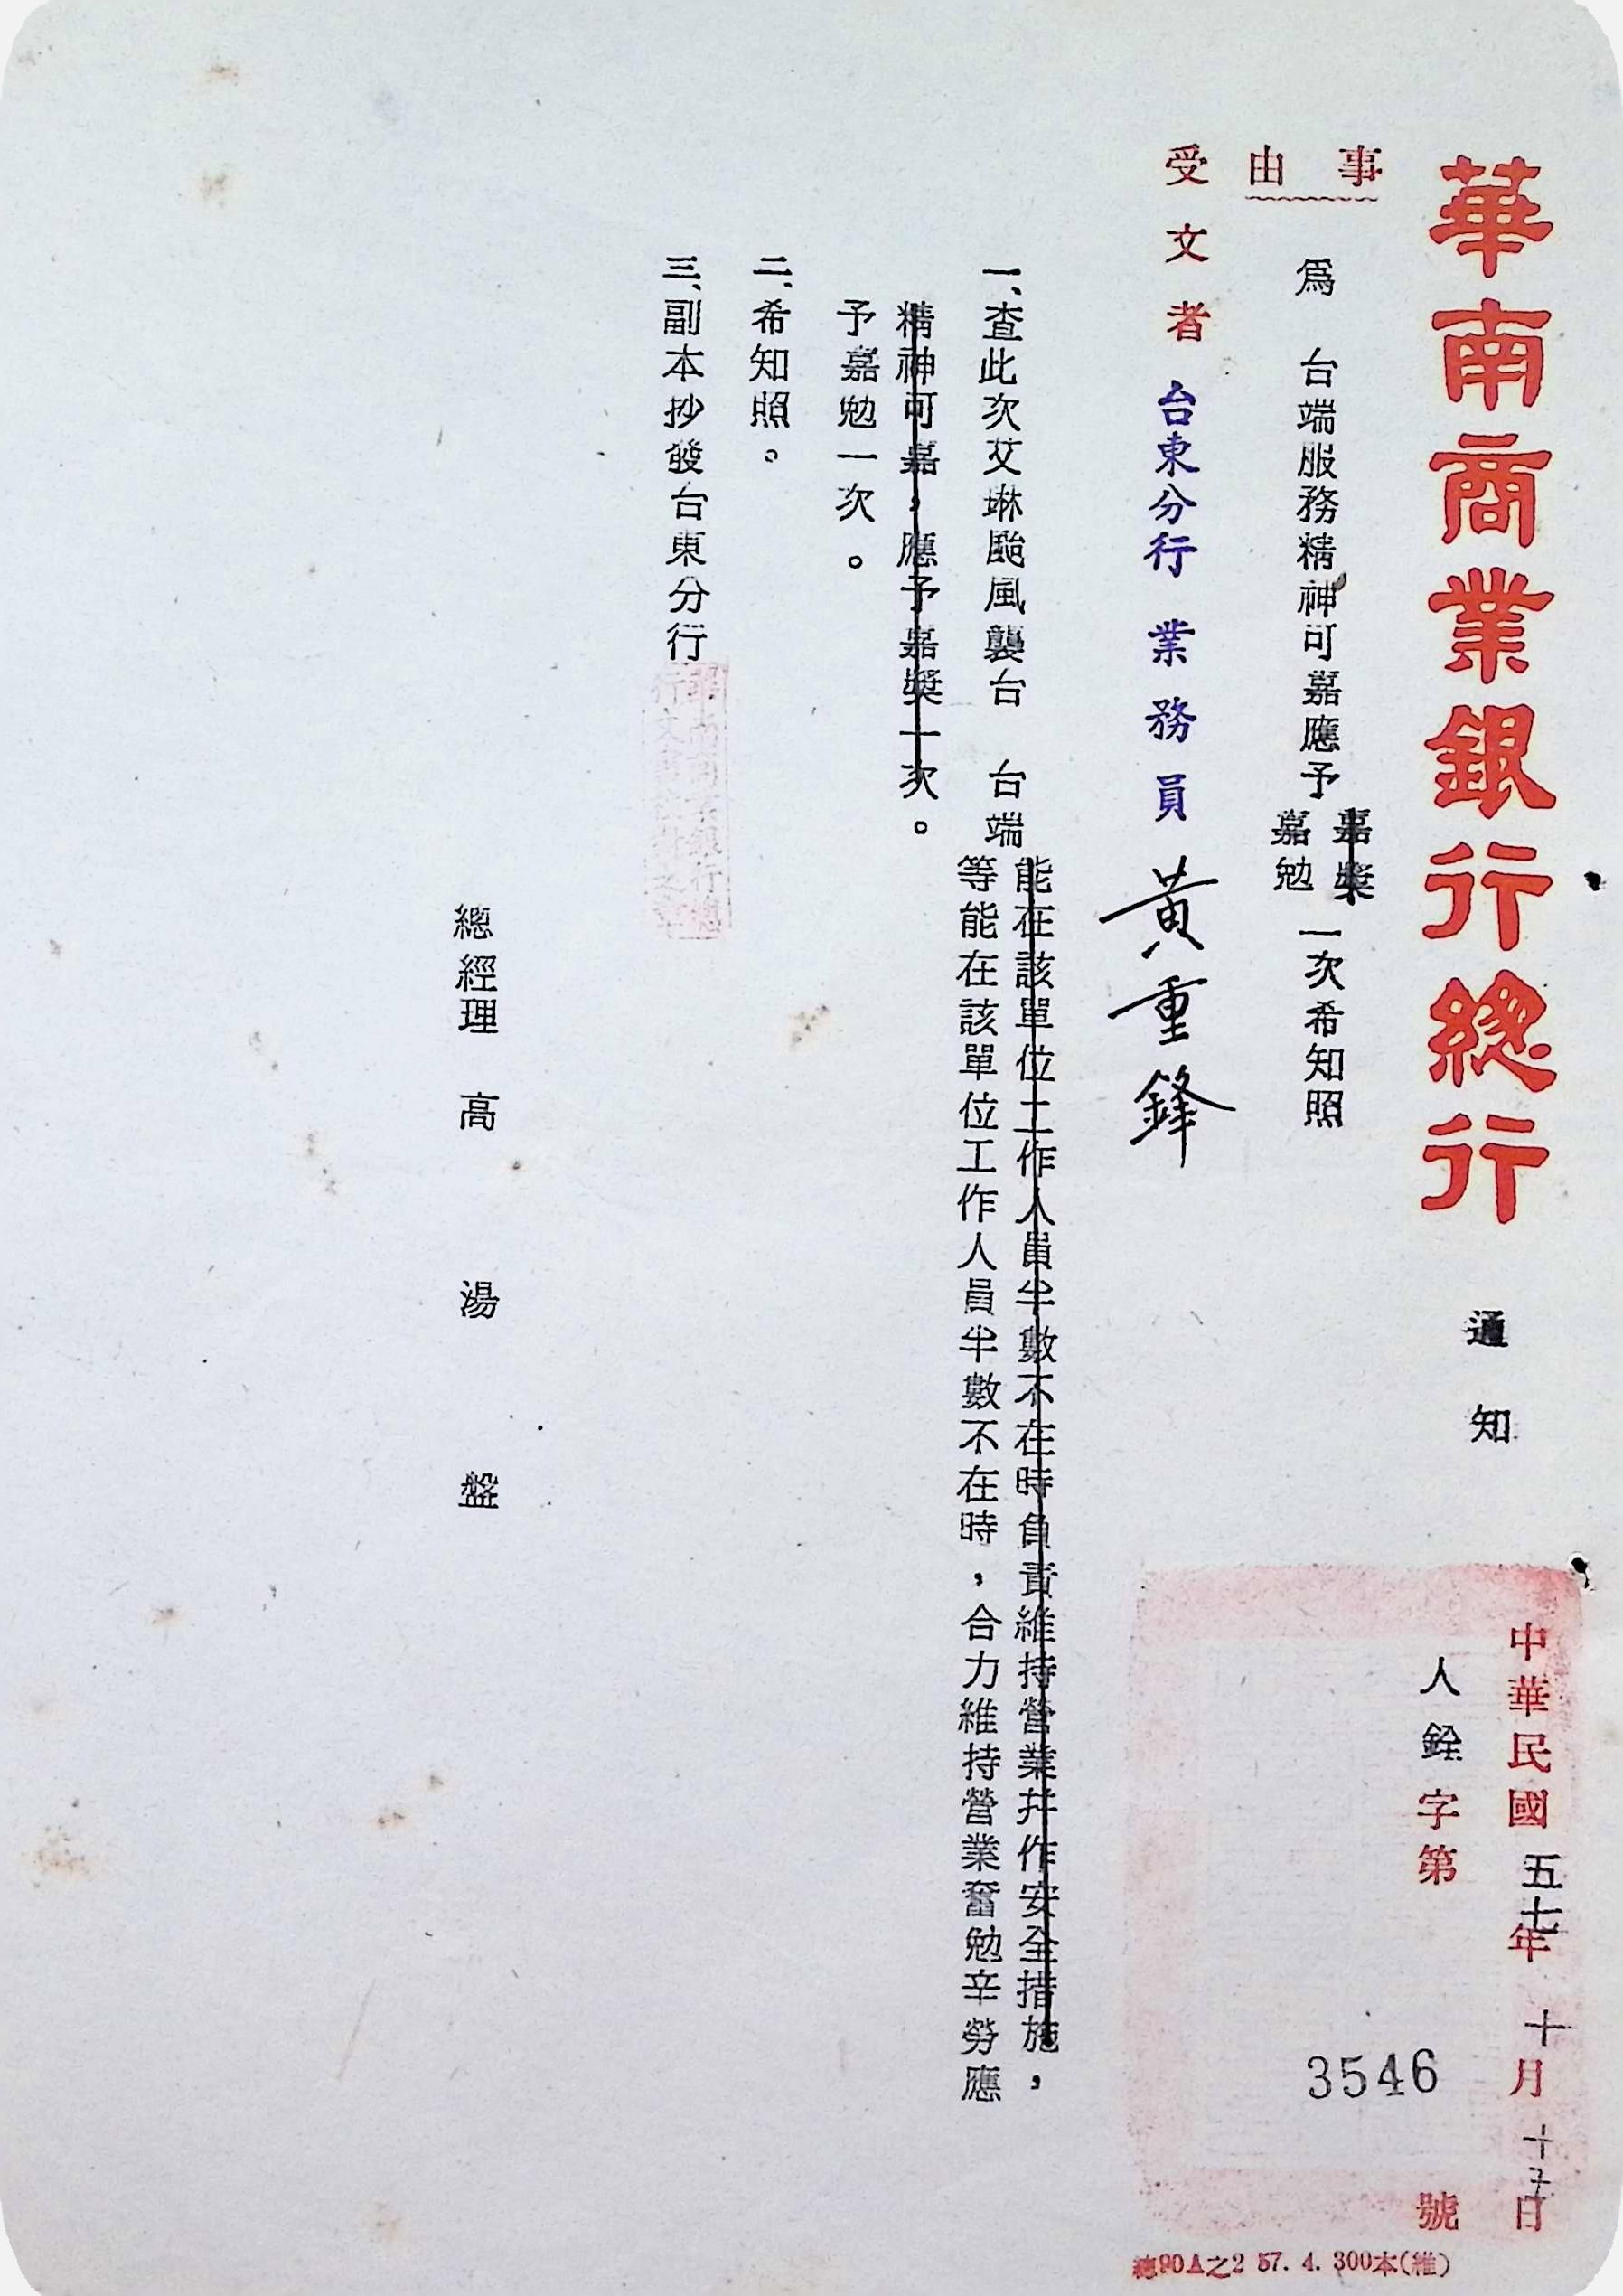 華南商業銀行總行 通知
中華民國五七年十月十五日
人銓字第3546號
事由
為 台端服務精神可嘉應予嘉獎一次希知照
嘉勉
受文者 台東分行業務員 黃重鋒
一、查此次艾琳颱風襲台 台端
能在該單位工作人員半數不在時負責維持營業并作安全措施,
等能在該單位工作人員半數不在時,合力維持營業奮勉辛勞應
精神可嘉,應予嘉獎一次。
予嘉勉一次。
二、希知照。
三、副本抄發台東分行
總經理 高湯盤
總90A之2 57. 4. 300本(維)